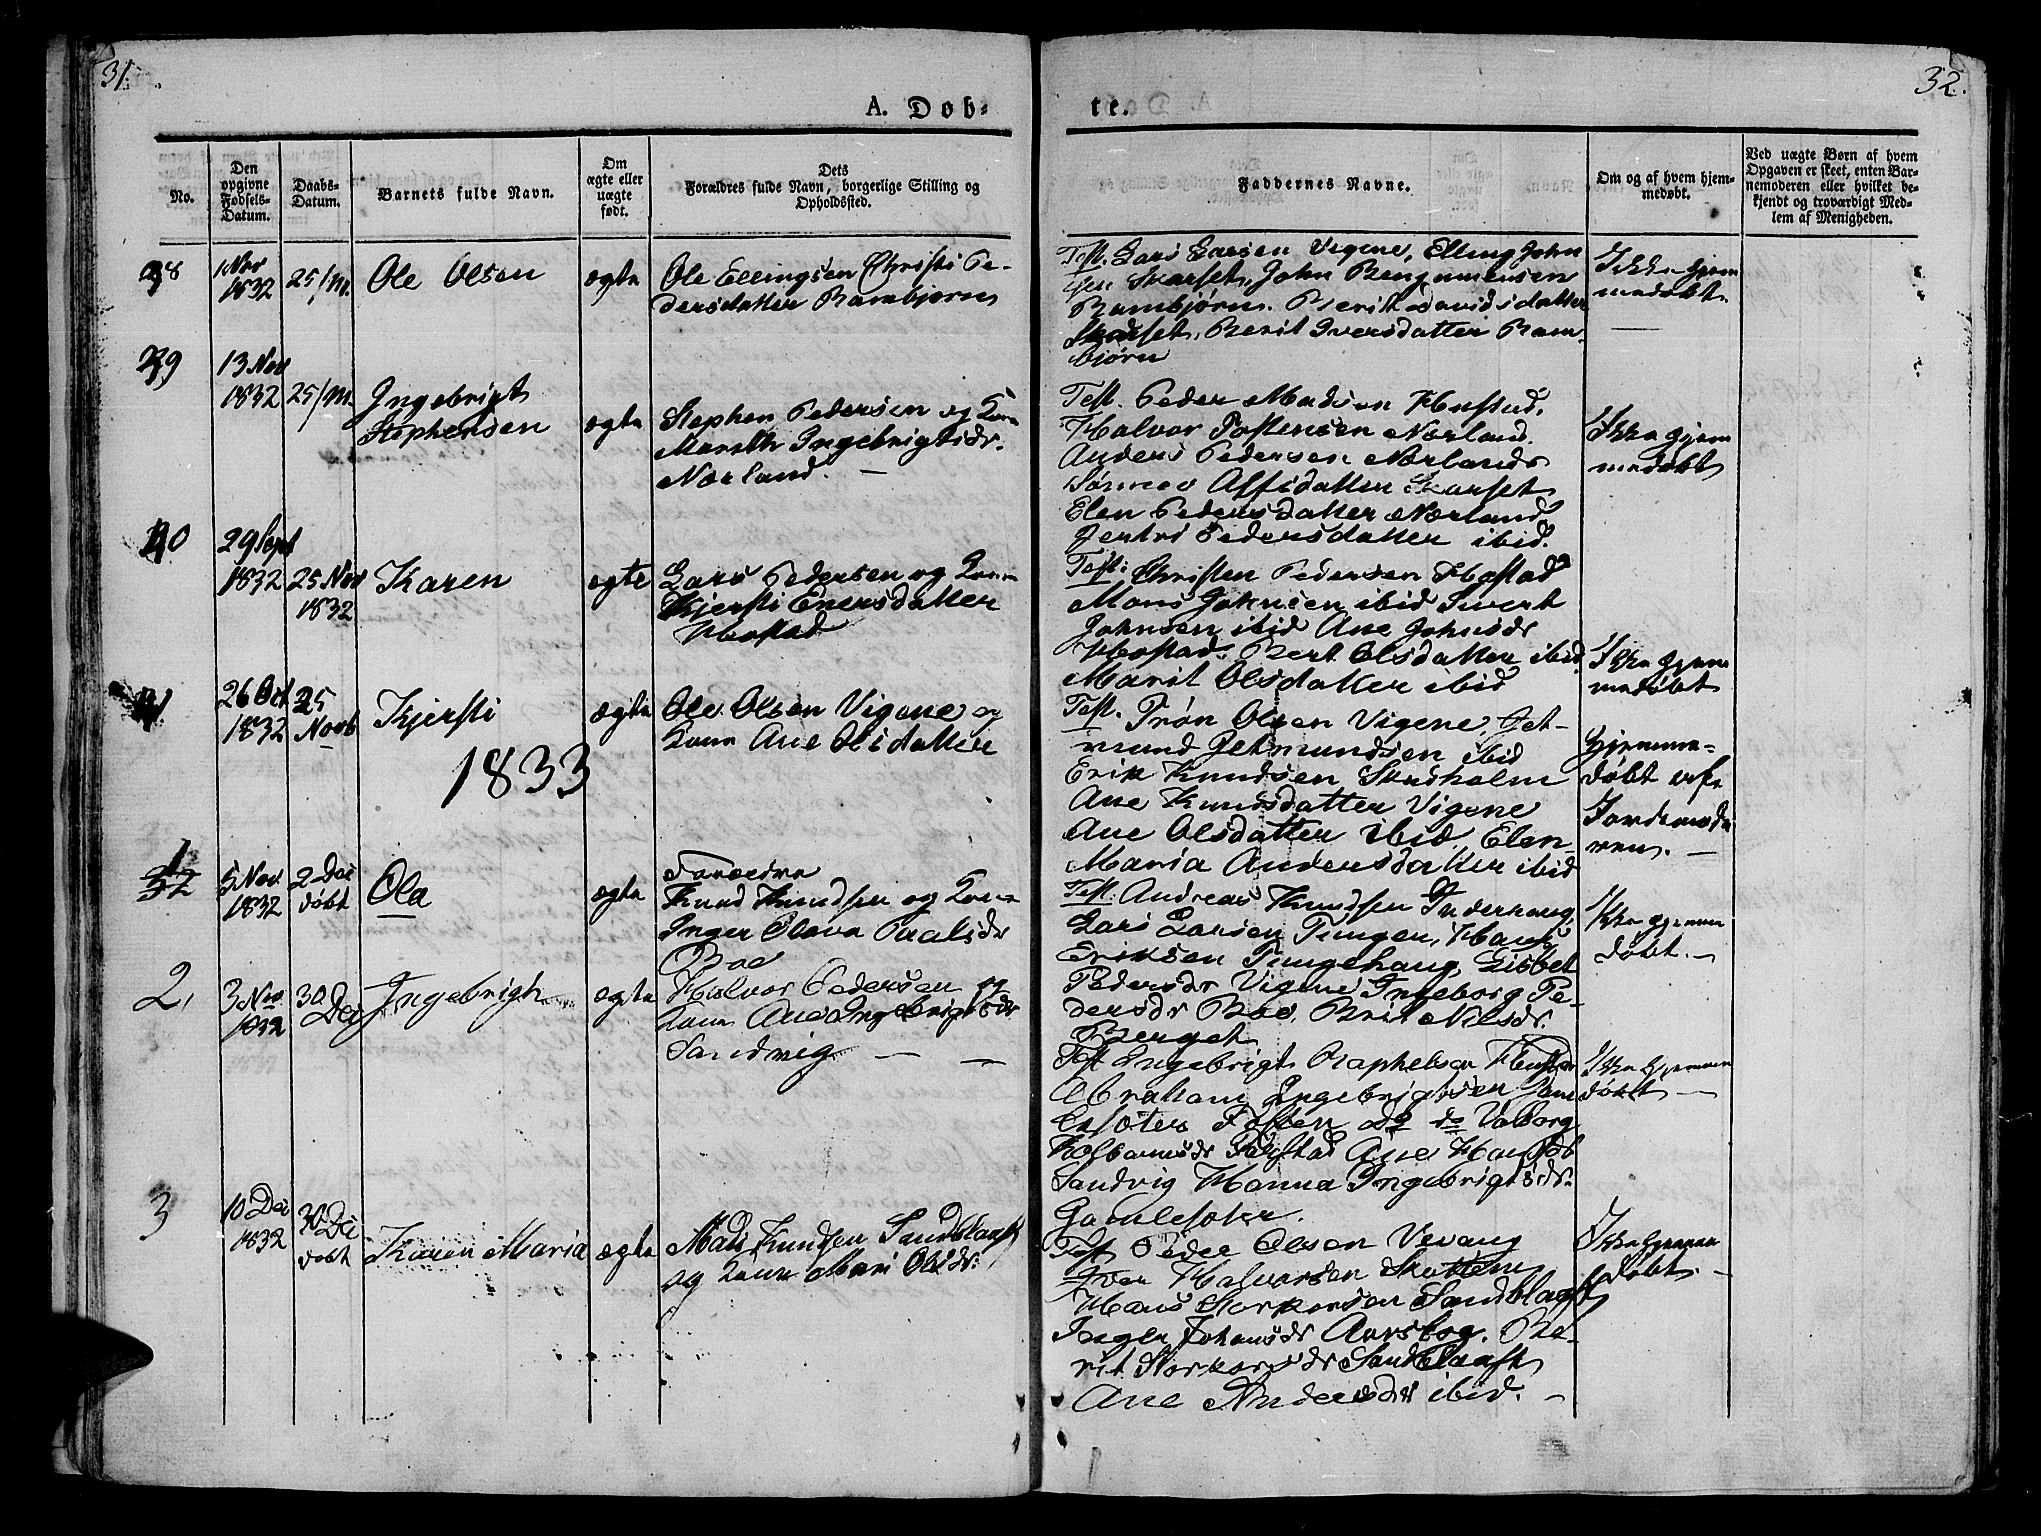 31.
32.
A. Døb-
te.
No.
Den opgivne Fødsels-Datum.
Daabs-Datum.
Barnets fulde Navn.
Om ægte eller uægte født.
Dets
Forældres fulde Navn, borgerlige Stilling og
Opholdssted.
Faddernes Navne.
Om og af hvem hjem-
medøbt.
Ved uægte Børn af hvem
Opgaven er skeet, enten Bar-
nemoderen eller hvilket be-
kjendt og troværdigt Med-
lem af Menigheden.
38
1 Nov
1832
25/M.
Ole Olsen
ægte
Ole Ellingsen Christi Pe-
dersdatter Rambjørn
Test. Lars Larsen Vigene, Elling John
sen Skarset, John Benjaminsen
Rambjørn. Berit Davidsdatter
Skarset, Berit Iversdatter Ram-
bjørn
Ikke hjem
medøbt.
39
13 Nov
1832
25/M.
Ingebrigt
Stephensen
ægte
Stephen Pedersen og Kone
Mareth Ingebrigtsdr.
Nærland. —
Test. Peder Madsen Hustad,
Halvor Tostensen Nærland.
Anders Pedersen Nærlands
Affsdatter Skarset
Elen Pedersdatter Nærland
Jertri Pedersdatter ibid.
Ikke hjem
medøbt
40
29 Sept
1832
25 Nov
1832
Karen
ægte
Lars Pedersen og Kone
Kjersti Enersdatter
Hostad
Test: Christen Pedersen Hostad
Mons Johnsen ibid Sivert
Johnsen ibid Ane Johnsdr
Hostad. Bert Olsdatter ibid
Marit Olsdatter ibid
Ikke hjem
medøbt
41
26 Oct
1832
25
Novb
Kjersti
ægte
Ole Olsen Vigene og
Kone Ane Olsdatter
Test. Trøn Olsen Vigene, Jet-
mund Jetmundsen ibid
Erik Knudsen Skudholm
Ane Knudsdatter Vigene
Ane Olsdatter ibid, Elen
Maria Andersdatter ibid
Hjemme-
døbt af
Jordemode
ren. —
1833
1
32
5 Nov.
1832
2 Dei
døbt
Ola
ægte
Forældre
Knud Knudsen og Kone
Inger Olava Paalsdr
Boe
Test: Andreas Knudsen Inderhaug,
Lars Larsen Tungen, Hans
Eriksen Tungehaug, Lisbet
Pedersdr Vigene Ingeborg Pe-
dersdr Boe, Brit Nilsdr.
Berget
Ikke hjemme
døbt. —
2,
3 Nov.
1832
30
Dei
Ingebrigt
ægte
Halvor Pedersen og
Kone Ane Ingebrigtsdr
Sandvig — —
Test Ingebrigt Raphelsen
Abraham Ingebrigtsen Gam
Tosten do do Valborg
Kolbensdr Ane Hansdr
Sandvig Hanna Ingebrigtsdr.
Gamlesæter.
Ikke hjemme
døbt —
3
10 Dei
1832
30 Dei
døbt
Karen Maria
ægte
Mads Knudsen Sandblaast
og Kone Mari Olsdr:
Test Peder Olsen Vevang
Iver Halvorsen Skottem
Hans Storkersen Sandblaast
Inger Johansdr Aarsbog. Be-
rit Storkersdr Sandblaast
Ane Andersdr ibid. —
Ikke hjemme
døbt. —